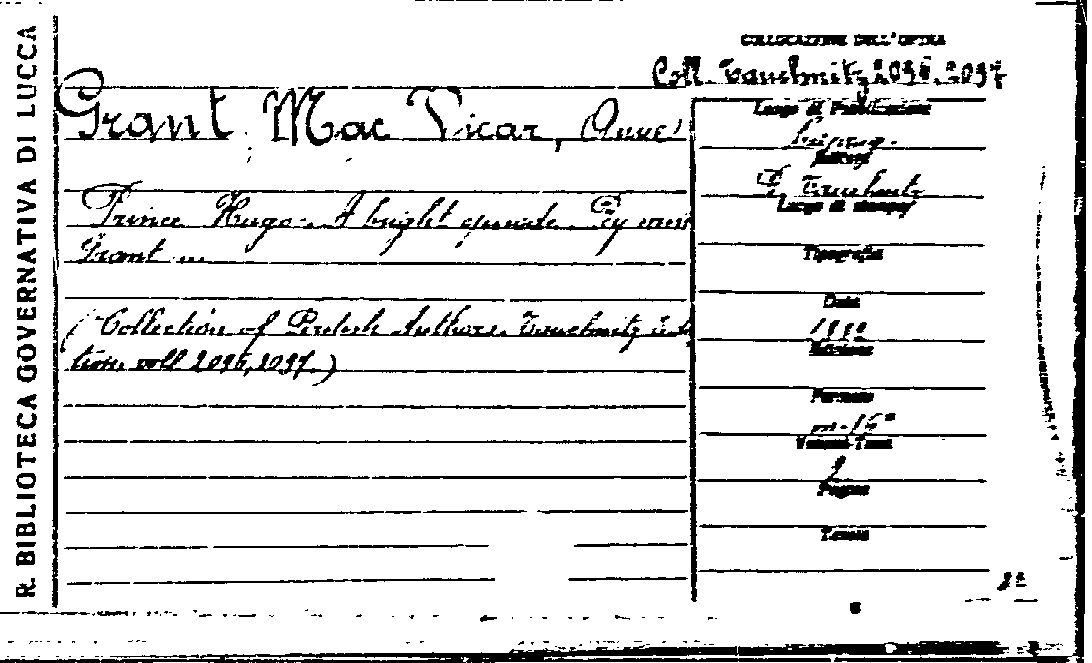 R. BIBLIOTECA GOVERNATIVA DI LUCCA
COLLOCAZIONE DELL'OPERA
Coll. Tauchnitz 2096, 2097
Grant Mac Vicar, (Anne)
Prince Hugo. A bright episode. By
Grant ...
(Collection of British Authors. Tauchnitz
tion. voll 2096, 2097.)
Luogo di Pubblicazione
Leipzig.
Editore
B. Tauchnitz
Luogo di stampa
Tipografia
Data
Edizione
Formato
in-16°
Volumi-Tomi
2
Pagine
Tavole